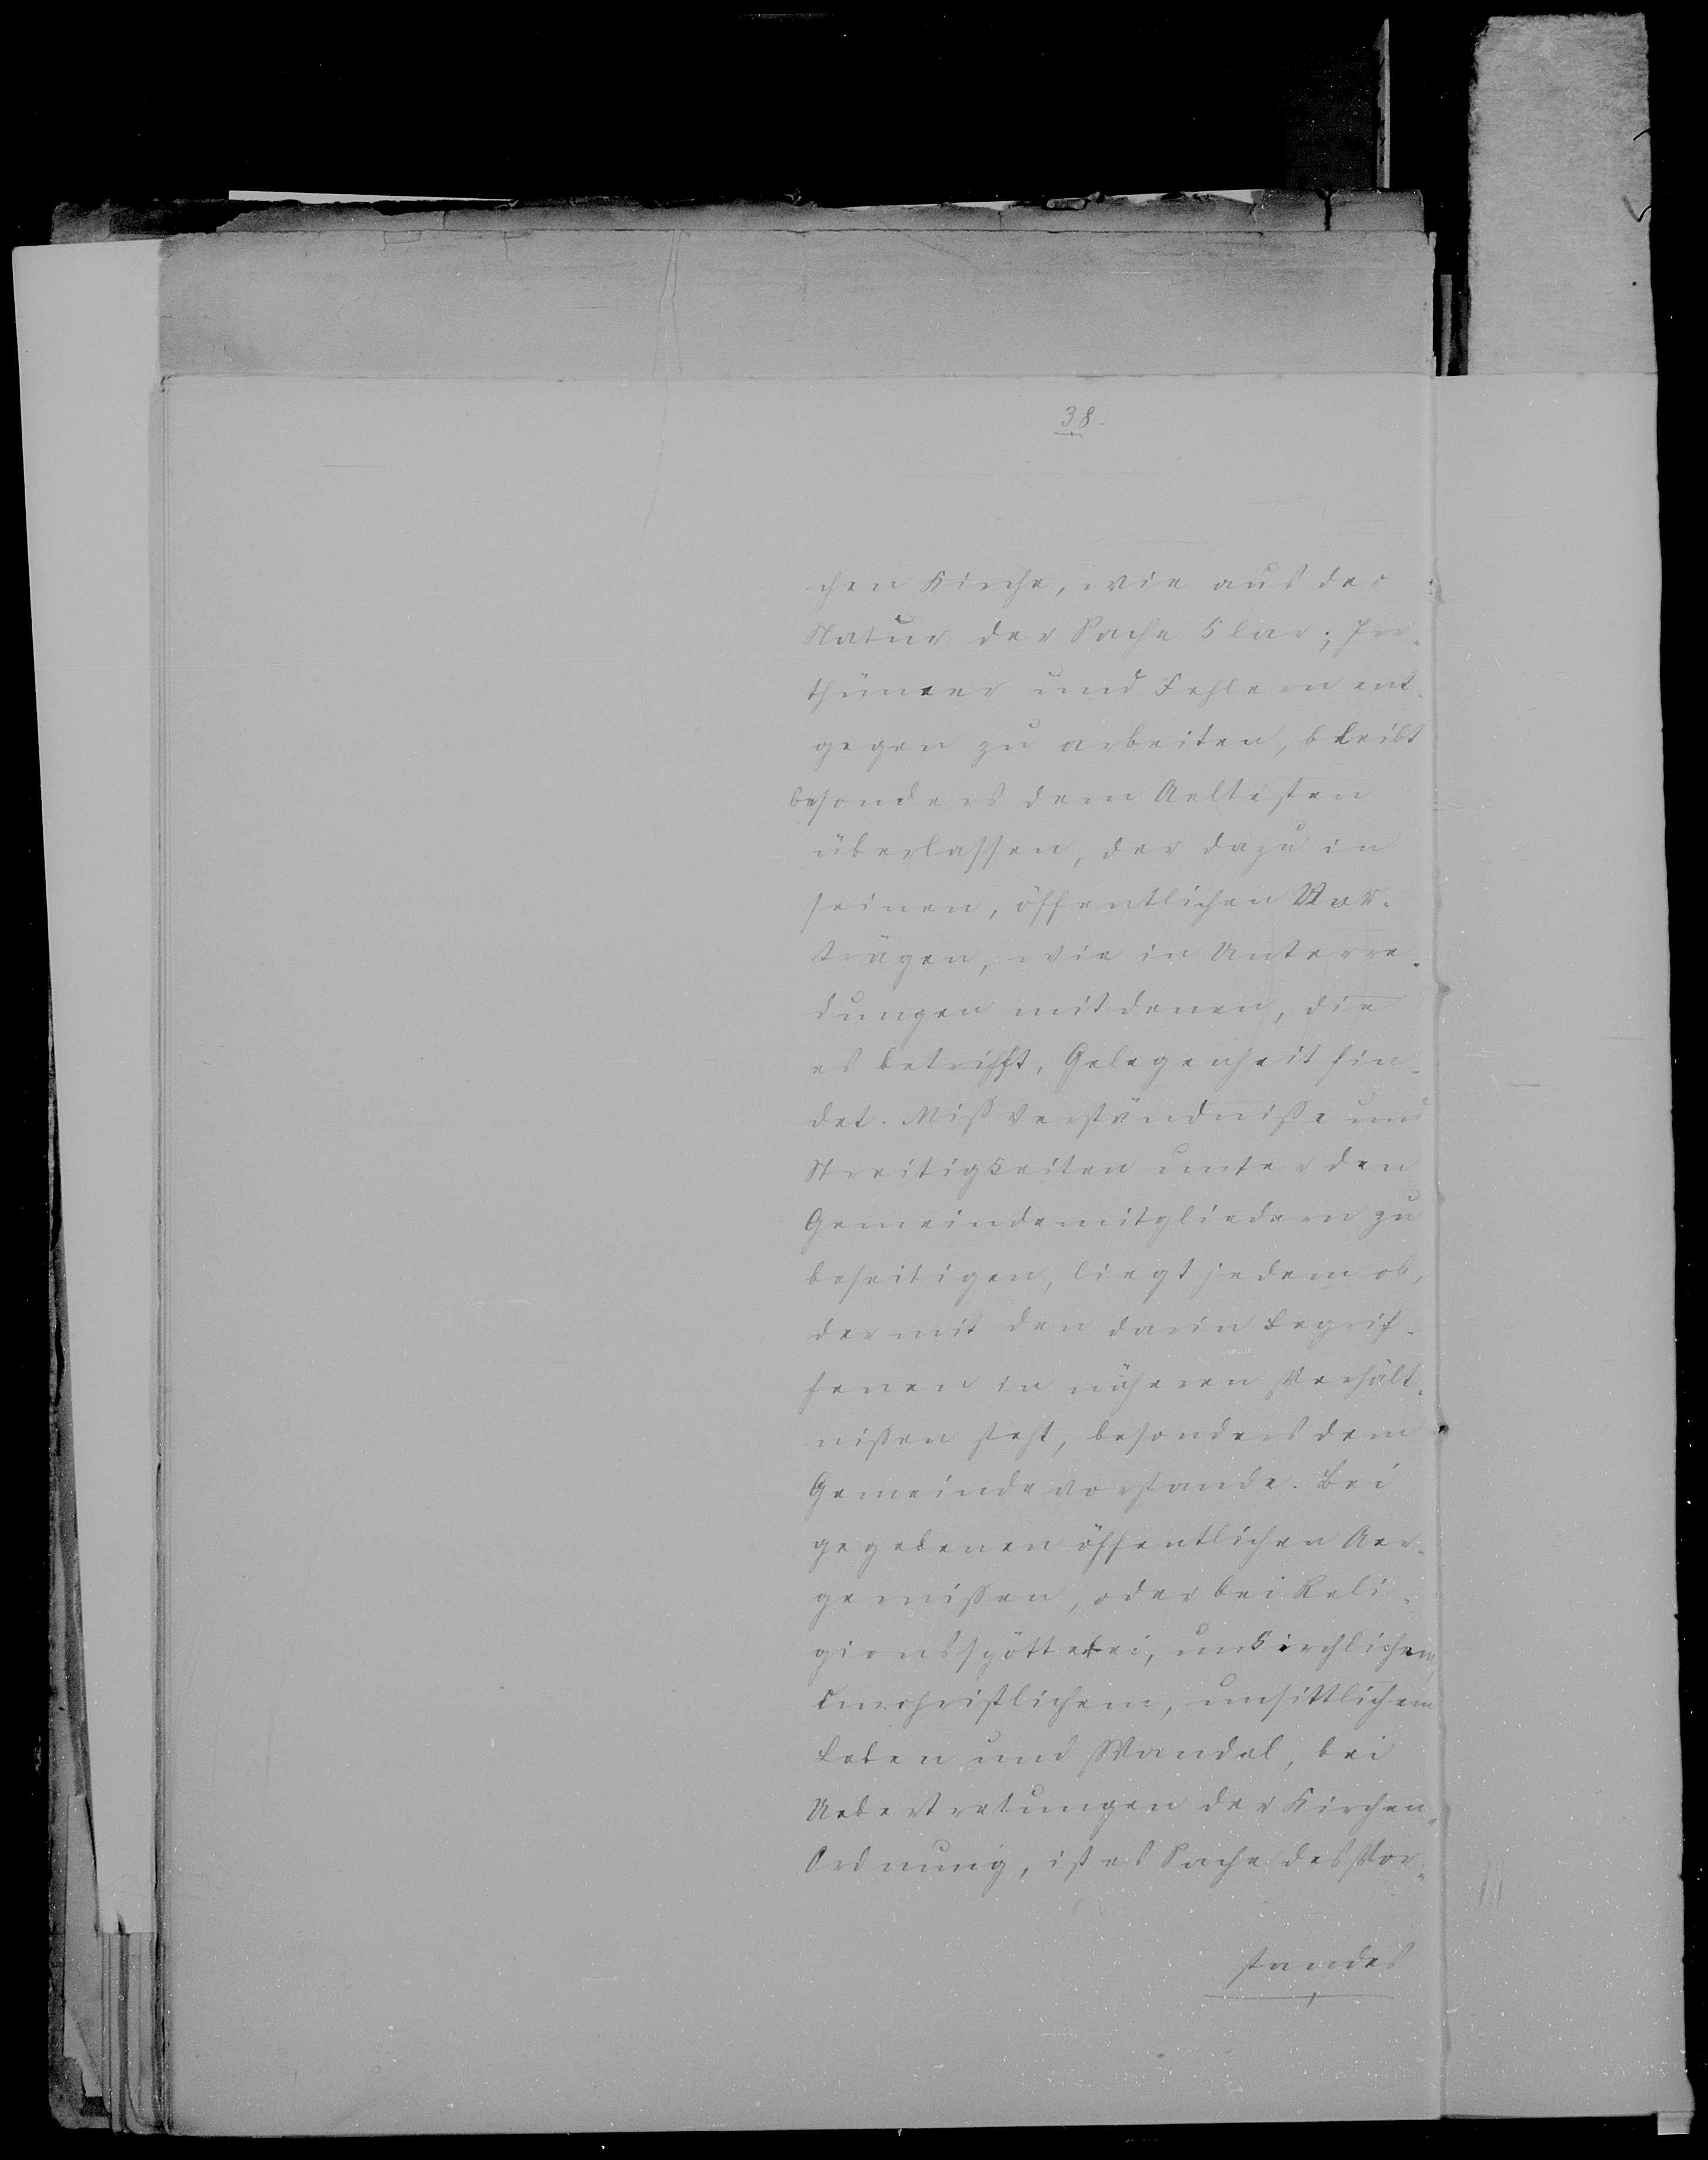 38.
chen Kirche, wie aus der
Natur der Sache klar; Irr-
thümer und Fehlern ent-
gegen zu arbeiten, bleibt
besonders dem Aeltesten
überlassen, der dazu in
seinen, öffentlichen Vor-
trägen, wie in Unterre-
dungen mit denen, die
es betrifft, Gelegenheit fin-
det. Mißverständniße und
Streitigkeiten unter den
Gemeindemitgliedern zu
beseitigen, liegt jedem ob,
der mit den darin begrif-
fenen in näheren Verhält-
nißen steht, besonders dem
Gemeindevorstande. Bei
gegebenen öffentlichen Aer-
gernißen, oder bei Reli-
gionsspötterei, unkirchlichem,
unchristlichem, unsittlichem
Leben und Wandel, bei
Uebertretungen der Kirchen-
Ordnung, ist es Sache des Vor-
standes